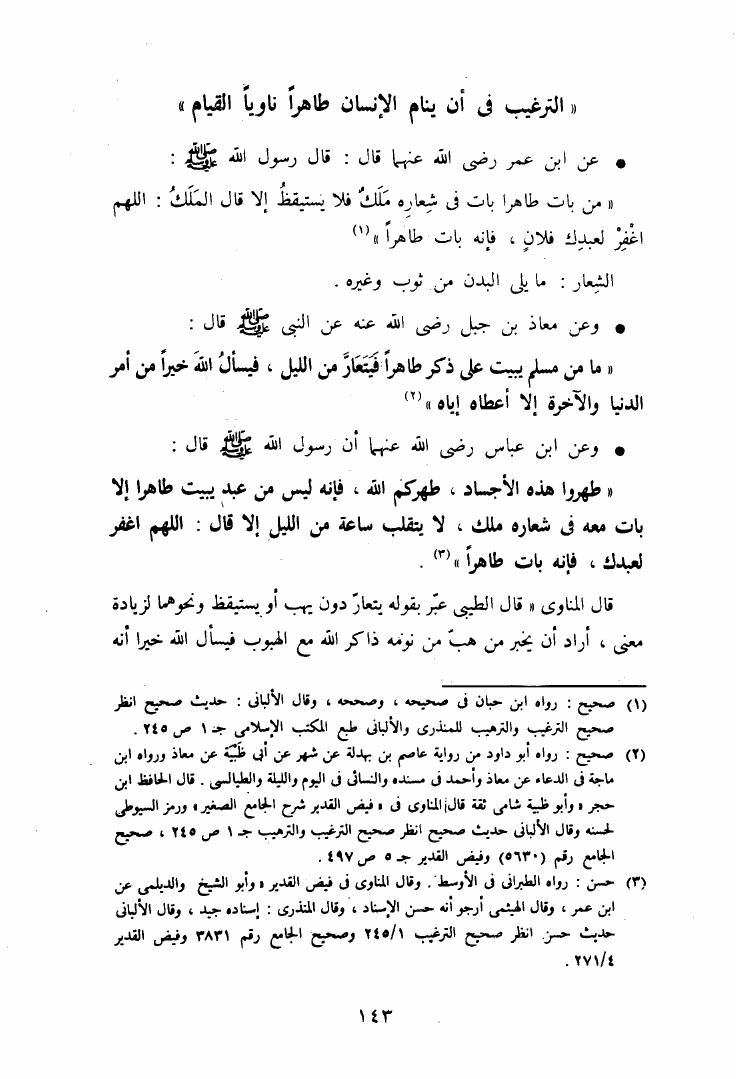 « الترغيب فى أن ينام الإنسان طاهراً ناوياً القيام »
● عن ابن عمر رضى الله عنهما قال : قال رسول الله ﷺ :
« من بات طاهرا بات فى شِعارِه مَلَكٌ فلا يَستيقظُ إلا قال المَلَكُ : اللهم
اغْفِرْ لعبدِك فلانٍ ، فإنه بات طاهراً »(١)
الشِعار : ما يلى البدن من ثوب وغيره .
● وعن معاذ بن جبل رضى الله عنه عن النبى ﷺ قال :
« ما من مسلم يبيت على ذكر طاهراً فَيَتَعَارَّ من الليل ، فيسألُ اللهَ خيراً من أمر
الدنيا والآخرة إلا أعطاه إياه »(٢)
● وعن ابن عباس رضى الله عنهما أن رسول الله ﷺ قال :
« طهروا هذه الأجساد ، طهركم الله ، فإنه ليس من عبد يبيت طاهرا إلا
بات معه فى شعاره ملك ، لا يتقلب ساعة من الليل إلا قال : اللهم اغفر
لعبدك ، فإنه بات طاهراً »(٣) .
قال المناوى « قال الطيبى عبّر بقوله يتعارّ دون يهب أو يستيقظ ونحوهما لزيادة
معنى ، أراد أن يخبر من هبّ من نومه ذاكر الله مع الهبوب فيسأل الله خيرا أنه
(١) صحيح : رواه ابن حبان فى صحيحه ، وصححه ، وقال الألبانى : حديث صحيح انظر
صحيح الترغيب والترهيب للمنذرى والألبانى طبع المكتب الإسلامى جـ ١ ص ٢٤٥ .
(٢) صحيح : رواه أبو داود من رواية عاصم بن بهدلة عن شهر عن أبى ظَبْيَة عن معاذ ورواه ابن
ماجة فى الدعاء عن معاذ وأحمد فى مسنده والنسائى فى اليوم والليلة والطيالسى . قال الحافظ ابن
حجر « وأبو ظبية شامى ثقة قال المناوى فى « فيض القدير شرح الجامع الصغير » ورمز السيوطى
لحسنه وقال الألبانى حديث صحيح انظر صحيح الترغيب والترهيب جـ ١ ص ٢٤٥ ، صحيح
الجامع رقم (٥٦٣٠) وفيض القدير جـ ٥ ص ٤٩٧ .
(٣) حسن : رواه الطبرانى فى الأوسط . وقال المناوى فى فيض القدير « وأبو الشيخ والديلمى عن
ابن عمر ، وقال الهيثمى أرجو أنه حسن الإسناد ، وقال المنذرى : إسناده جيد ، وقال الألبانى
حديث حسن انظر صحيح الترغيب ٢٤٥/١ وصحيح الجامع رقم ٣٨٣١ وفيض القدير
٢٧١/٤ .
١٤٣